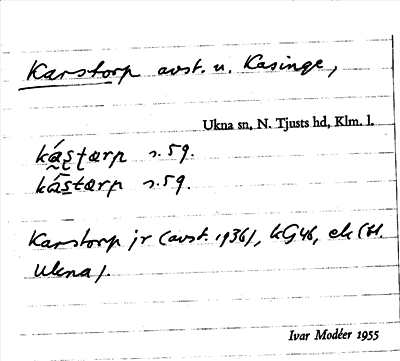 Karstorp avst. u. Kasinge,
Ukna sn, N. Tjusts hd, Klm. l.
kás̨tærp s. 59.
ká̄stærp s. 59.
Karstorp jr (avst. 1936), kG46, ek (H.
Ukna).
Ivar Modéer 1955